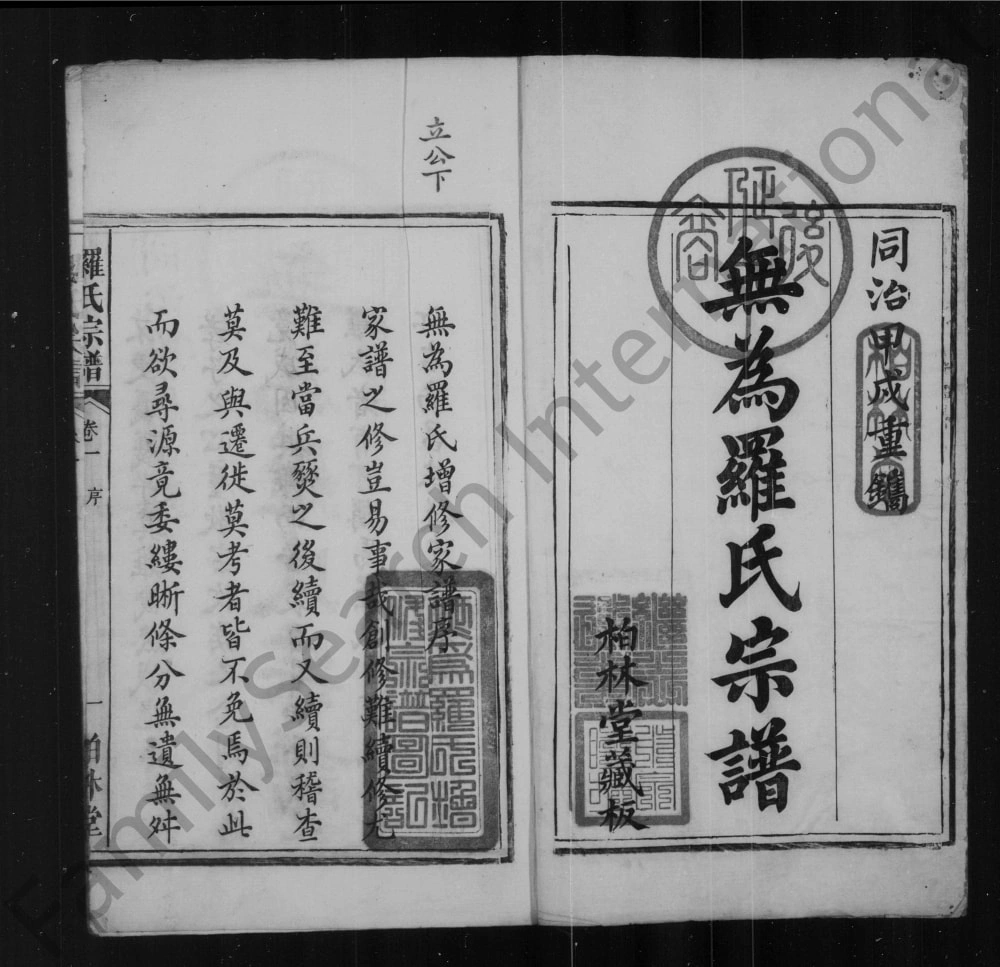 同治甲戌重鐫
無為羅氏宗譜
柏林堂藏板
立公下
無為羅氏增修家譜序
家譜之修豈易事哉創修難續修尤
難至當兵燹之後續而又續則稽查
莫及與遷徙莫考者皆不免焉於此
而欲尋源竟委縷晰條分無遺無舛
羅氏宗譜
卷一
序
一
柏林堂
FamilySearch International